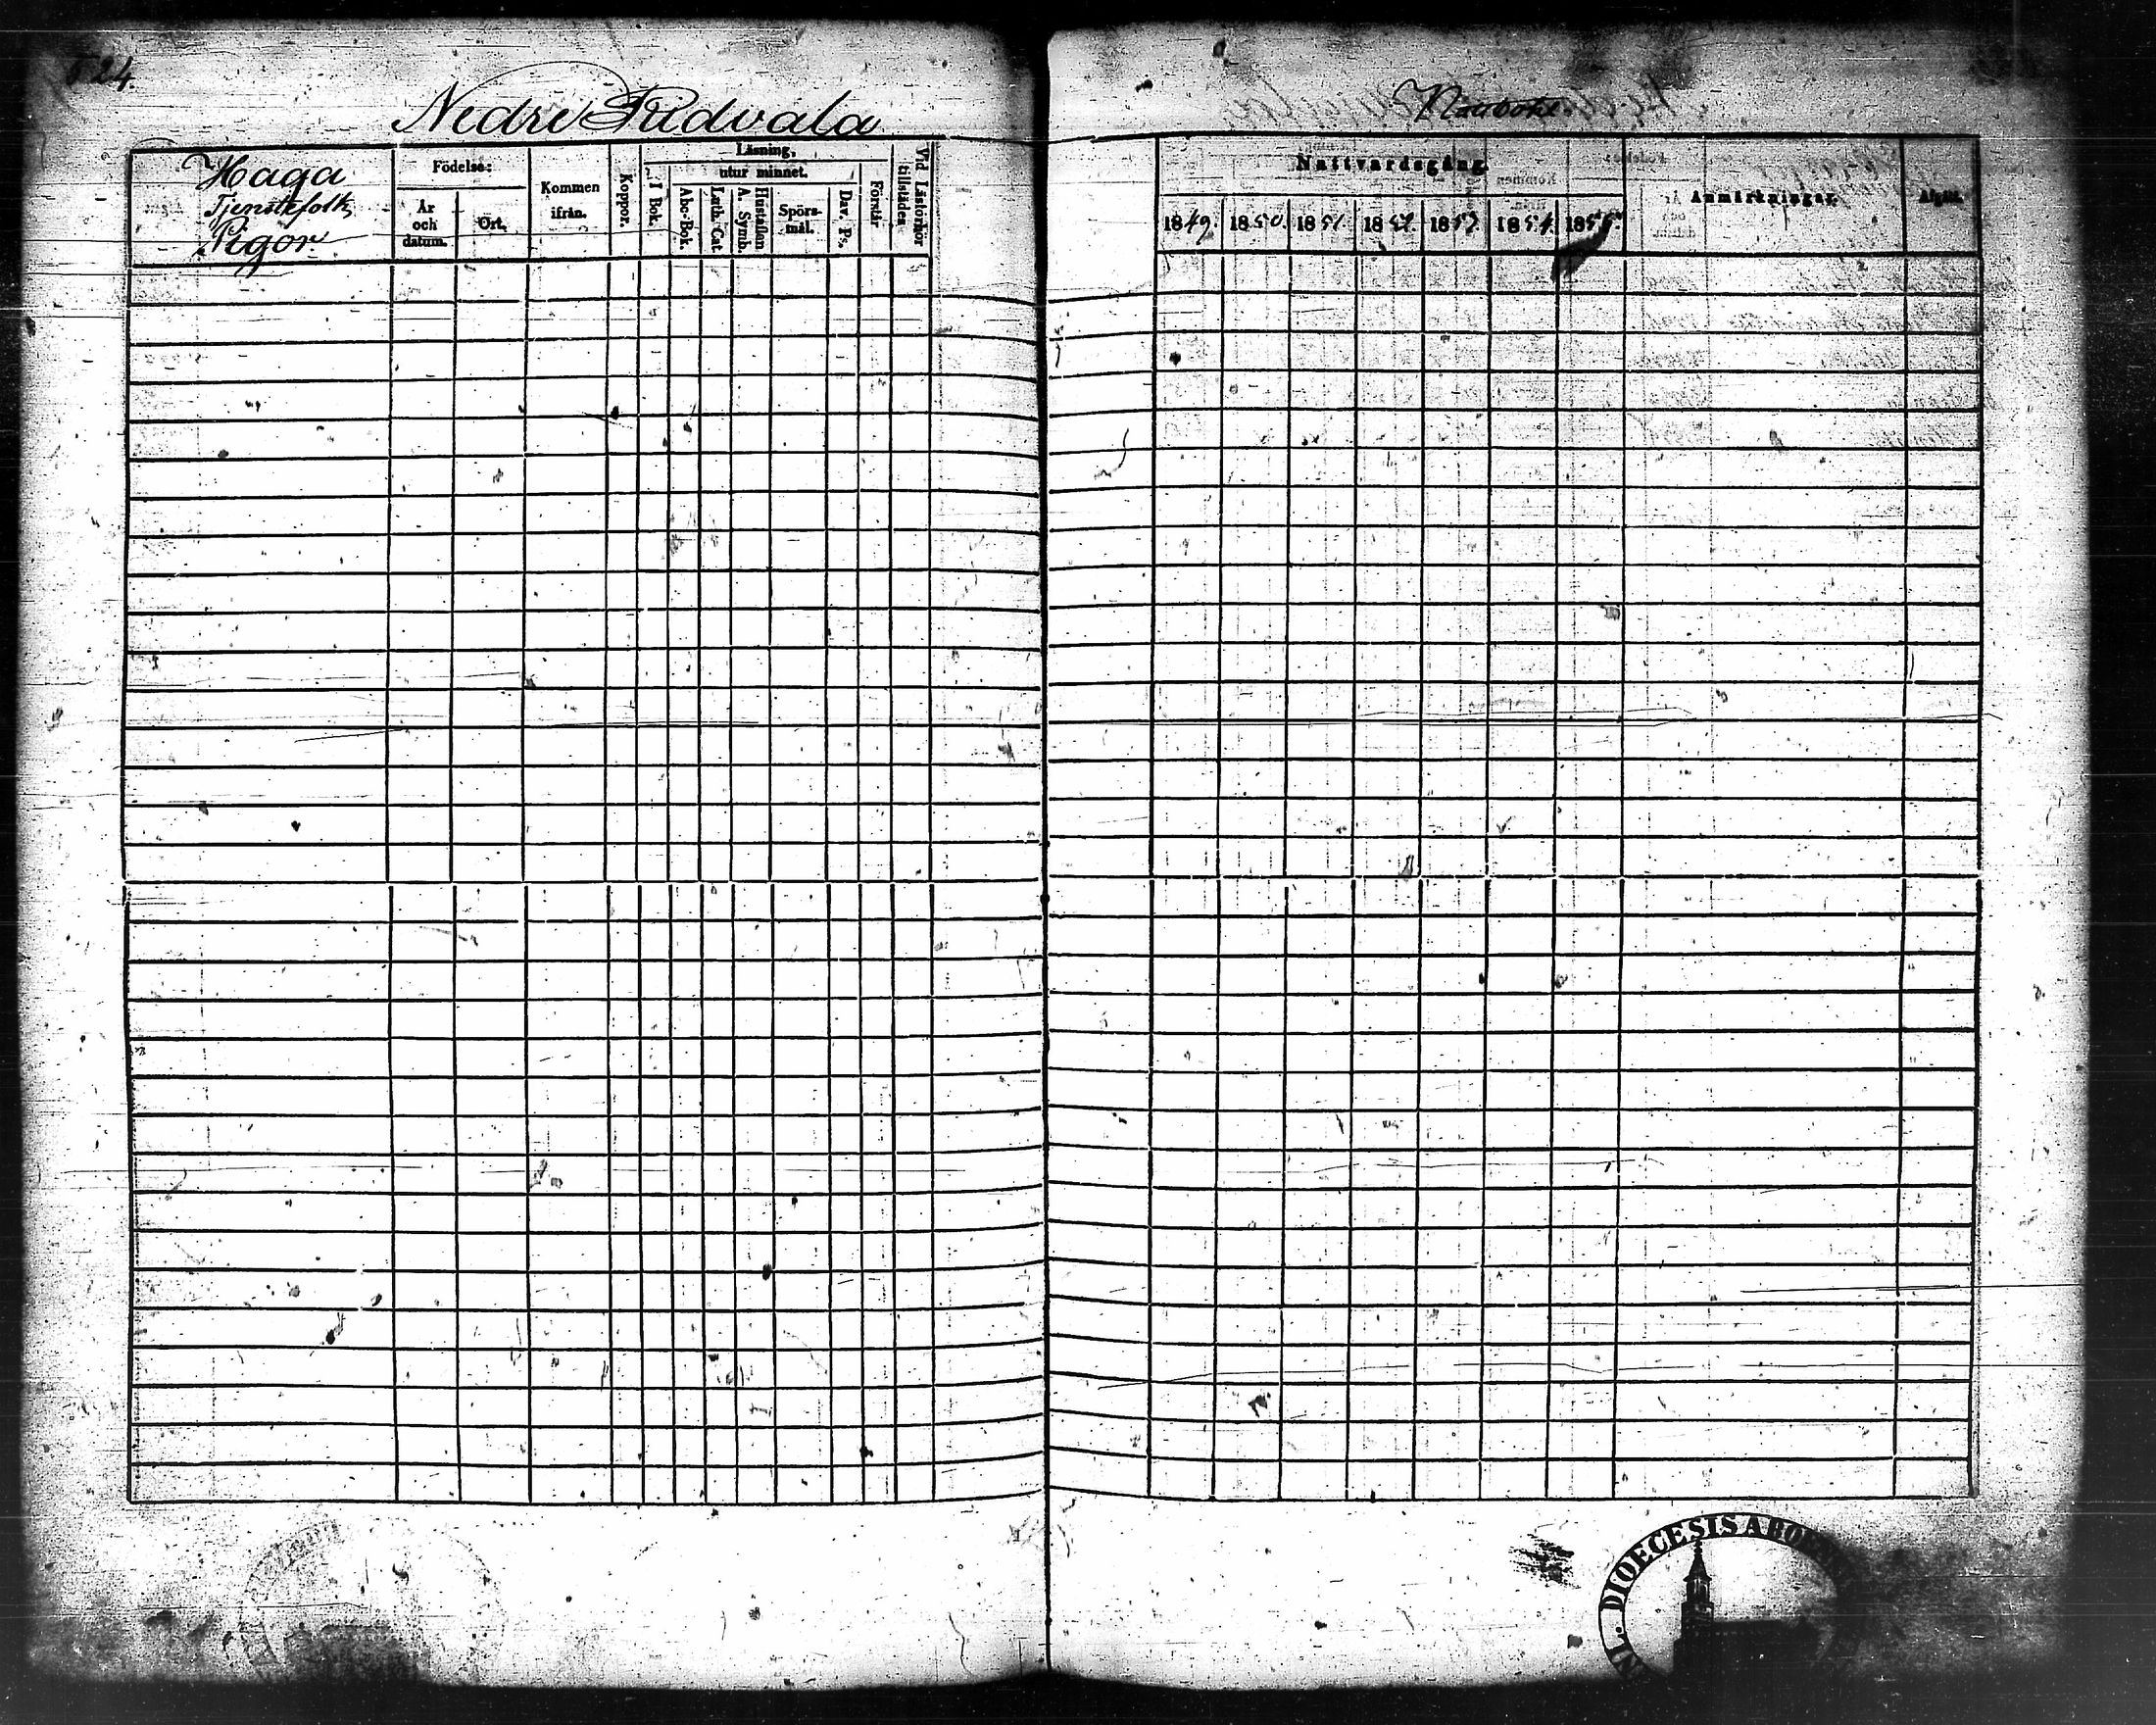 524.
Nedre Ridvala
Haga
Tjenstefolk
Pigor
Födelse:
År och datum.
Ort.
Kommen ifrån.
Koppor.
Läsning,
utur minnet.
I Bok.
Abc-Bok.
Luth. Cat.
A. Symb.
Hustaflan
Spörs-mål.
Dav. Ps.
Förstår
Vid Läsförhör tillstädes
Nattvardsgång.
1849. 1850. 1851. 1852. 1853. 1854. 1855.
Anmärkningar.
Afgått.
DIOECESIS ABOENSIS